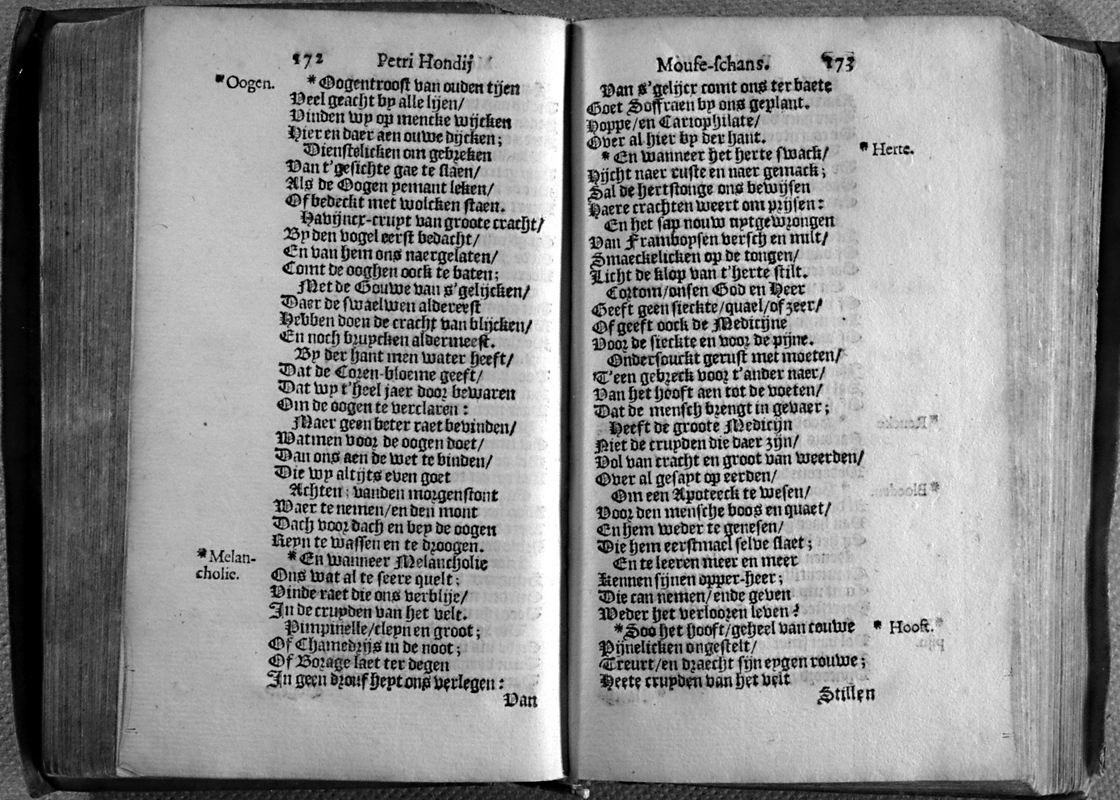 172 Petri Hondij
*Oogen.
*Oogentroost van ouden tijen
Veel geacht by alle lijen/
Vinden wy op mencke wijcken
Hier en daer aen ouwe dijcken;
Dienstelicken om gebreken
Van t'gesichte gae te slaen/
Als de Oogen yemant leken/
Of bedeckt met wolcken staen.
Havijncx-cruyt van groote cracht/
By den vogel eerst bedacht/
En van hem ons naergelaten/
Comt de ooghen oock te baten;
Met de Gouwe van s'gelijcken/
Daer de swaelwen aldereerst
Hebben doen de cracht van blijcken/
En noch bruycken aldermeest.
By der hant men water heeft/
Dat de Coren-bloeme geeft/
Dat wy t'heel jaer door bewaren
Om de oogen te verclaren:
Maer geen beter raet bevinden/
Watmen voor de oogen doet/
Dan ons aen de wet te binden/
Die wy altijts even goet
Achten; vanden morgenstont
Waer te nemen/en den mont
Dach voor dach en bey de oogen
Reyn te wassen en te droogen.
*Melan-
cholie.
*En wanneer Melancholie
Ons wat al te seere quelt;
Vinde raet die ons verblije/
In de cruyden van het velt.
Pimpinelle/cleyn en groot;
Of Chamedrijs in de noot;
Of Borage laet ter degen
In geen drouf heyt ons verlegen:
Van
Mouse-schans. 173
Van s'gelijcx comt ons ter baete
Goet Soffraen by ons geplant.
Hoppe/en Cariophilate/
Over al hier by der hant.
*En wanneer het herte swack/
Hijcht naer ruste en naer gemack;
Sal de hertstonge ons bewijsen
Haere crachten weert om prijsen:
En het sap nouw uytgewrongen
Van Framboysen versch en milt/
Smaeckelicken op de tongen/
Licht de klop van t'herte stilt.
*Herte.
Cortom/onsen God en Heer
Geeft geen sieckte/quael/of zeer/
Of geeft oock de Medicijne
Voor de sieckte en voor de pijne.
Ondersourkt gerust met moeten/
T'een gebreck voor t'ander naer/
Van het hooft aen tot de voeten/
Dat de mensch brengt in gevaer;
Heeft de groote Medicijn
Niet de cruyden die daer zijn/
Vol van cracht en groot van weerden/
Over al gesayt op eerden/
Om een Apoteeck te wesen/
Voor den mensche boos en quaet/
En hem weder te genesen/
Die hem eerstmael selve slaet;
En te leeren meer en meer
Kennen sijnen opper-heer;
Die can nemen/ende geven
Weder het verlooren leven?
*Soo het hooft/geheel van touwe
Pijnelicken ongestelt/
Treurt/en draecht sijn eygen rouwe;
Heete cruyden van het velt
*Hooft.
Stillen